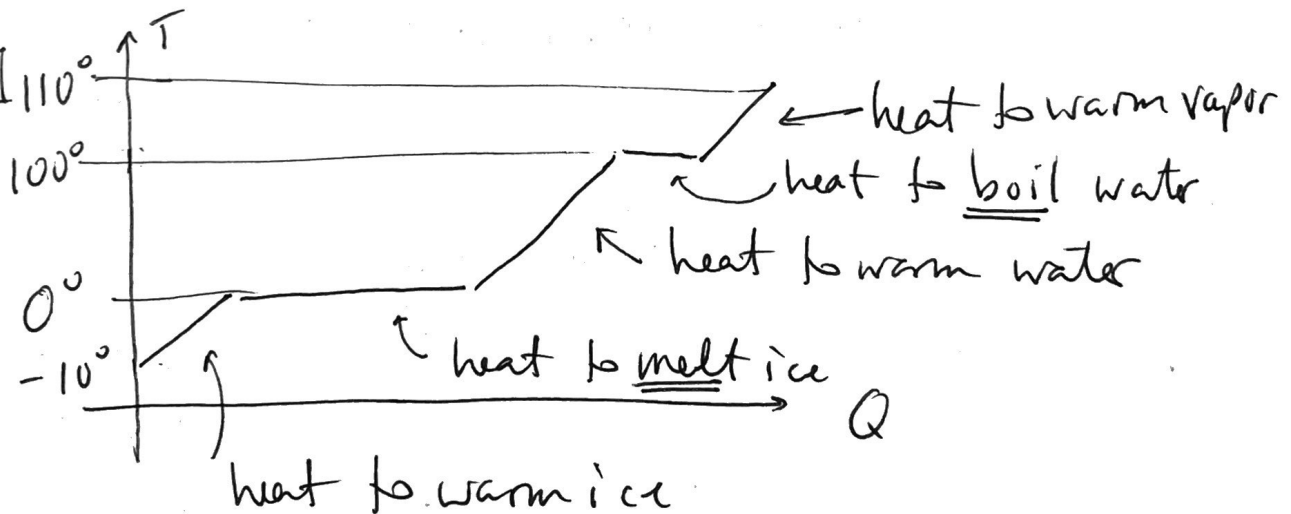 T
110°
100°
0°
-10°
heat to warm vapor
heat to boil water
heat to warm water
heat to melt ice
Q
heat to warm ice